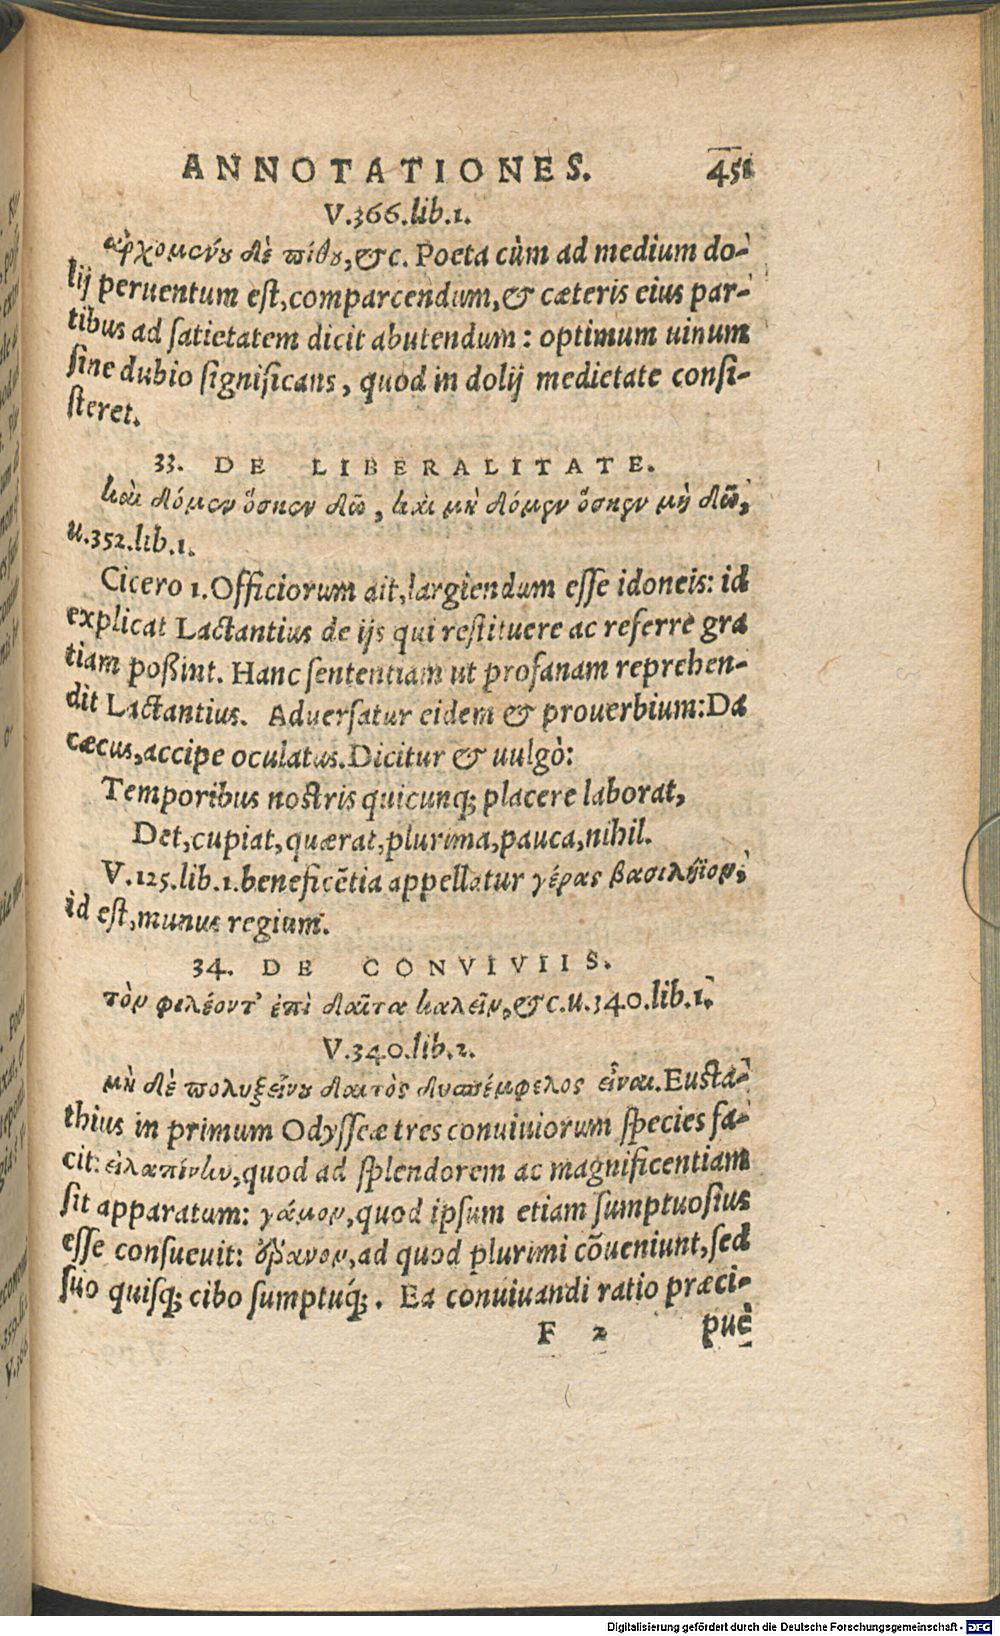 ANNOTATIONES. 451
V.366.lib.1.
ἀρχομένου δὲ πίθου,&c. Poeta cùm ad medium do-
lij peruentum eſt,comparcendum,& cæteris eius par-
tibus ad ſatietatem dicit abutendum: optimum uinum
ſine dubio ſignificans, quod in dolij medietate conſi-
ſteret.
33. DE LIBERALITATE.
καὶ δόμεν ὅσκεν δῶ, καὶ μὴ δόμεν ὅσκεν μὴ δῶ,
u.352.lib.1.
Cicero 1.Officiorum ait,largiendum eſſe idoneis: id
explicat Lactantius de ijs qui reſtituere ac referre gra
tiam poßint. Hanc ſententiam ut profanam reprehen-
dit Lactantius. Aduerſatur eidem & prouerbium:Da
cæcus,accipe oculatus.Dicitur & uulgò:
Temporibus noſtris quicunq; placere laborat,
Det,cupiat,quærat,plurima,pauca,nihil.
V.125.lib.1.beneficẽtia appellatur γέρας βασιλήϊον,
id eſt,munus regium.
34. DE CONVIVIIS.
τὸν φιλέοντ' ἐπὶ δαῖτα καλεῖν,&c.u.340.lib.1.
V.340.lib.2.
μὴ δὲ πολυξείνου δαιτὸς δυσπέμφελος εἶναι.Euſta-
thius in primum Odyſſeæ tres conuiuiorum ſpecies fa-
cit: εἰλαπίνην,quod ad ſplendorem ac magnificentiam
ſit apparatum: γάμον,quod ipſum etiam ſumptuoſius
eſſe conſueuit: ἔρανον,ad quod plurimi cõueniunt,ſed
ſuo quiſq; cibo ſumptuq́;. Ea conuiuandi ratio præci-
F 2 puè
Digitalisierung gefördert durch die Deutsche Forschungsgemeinschaft - DFG